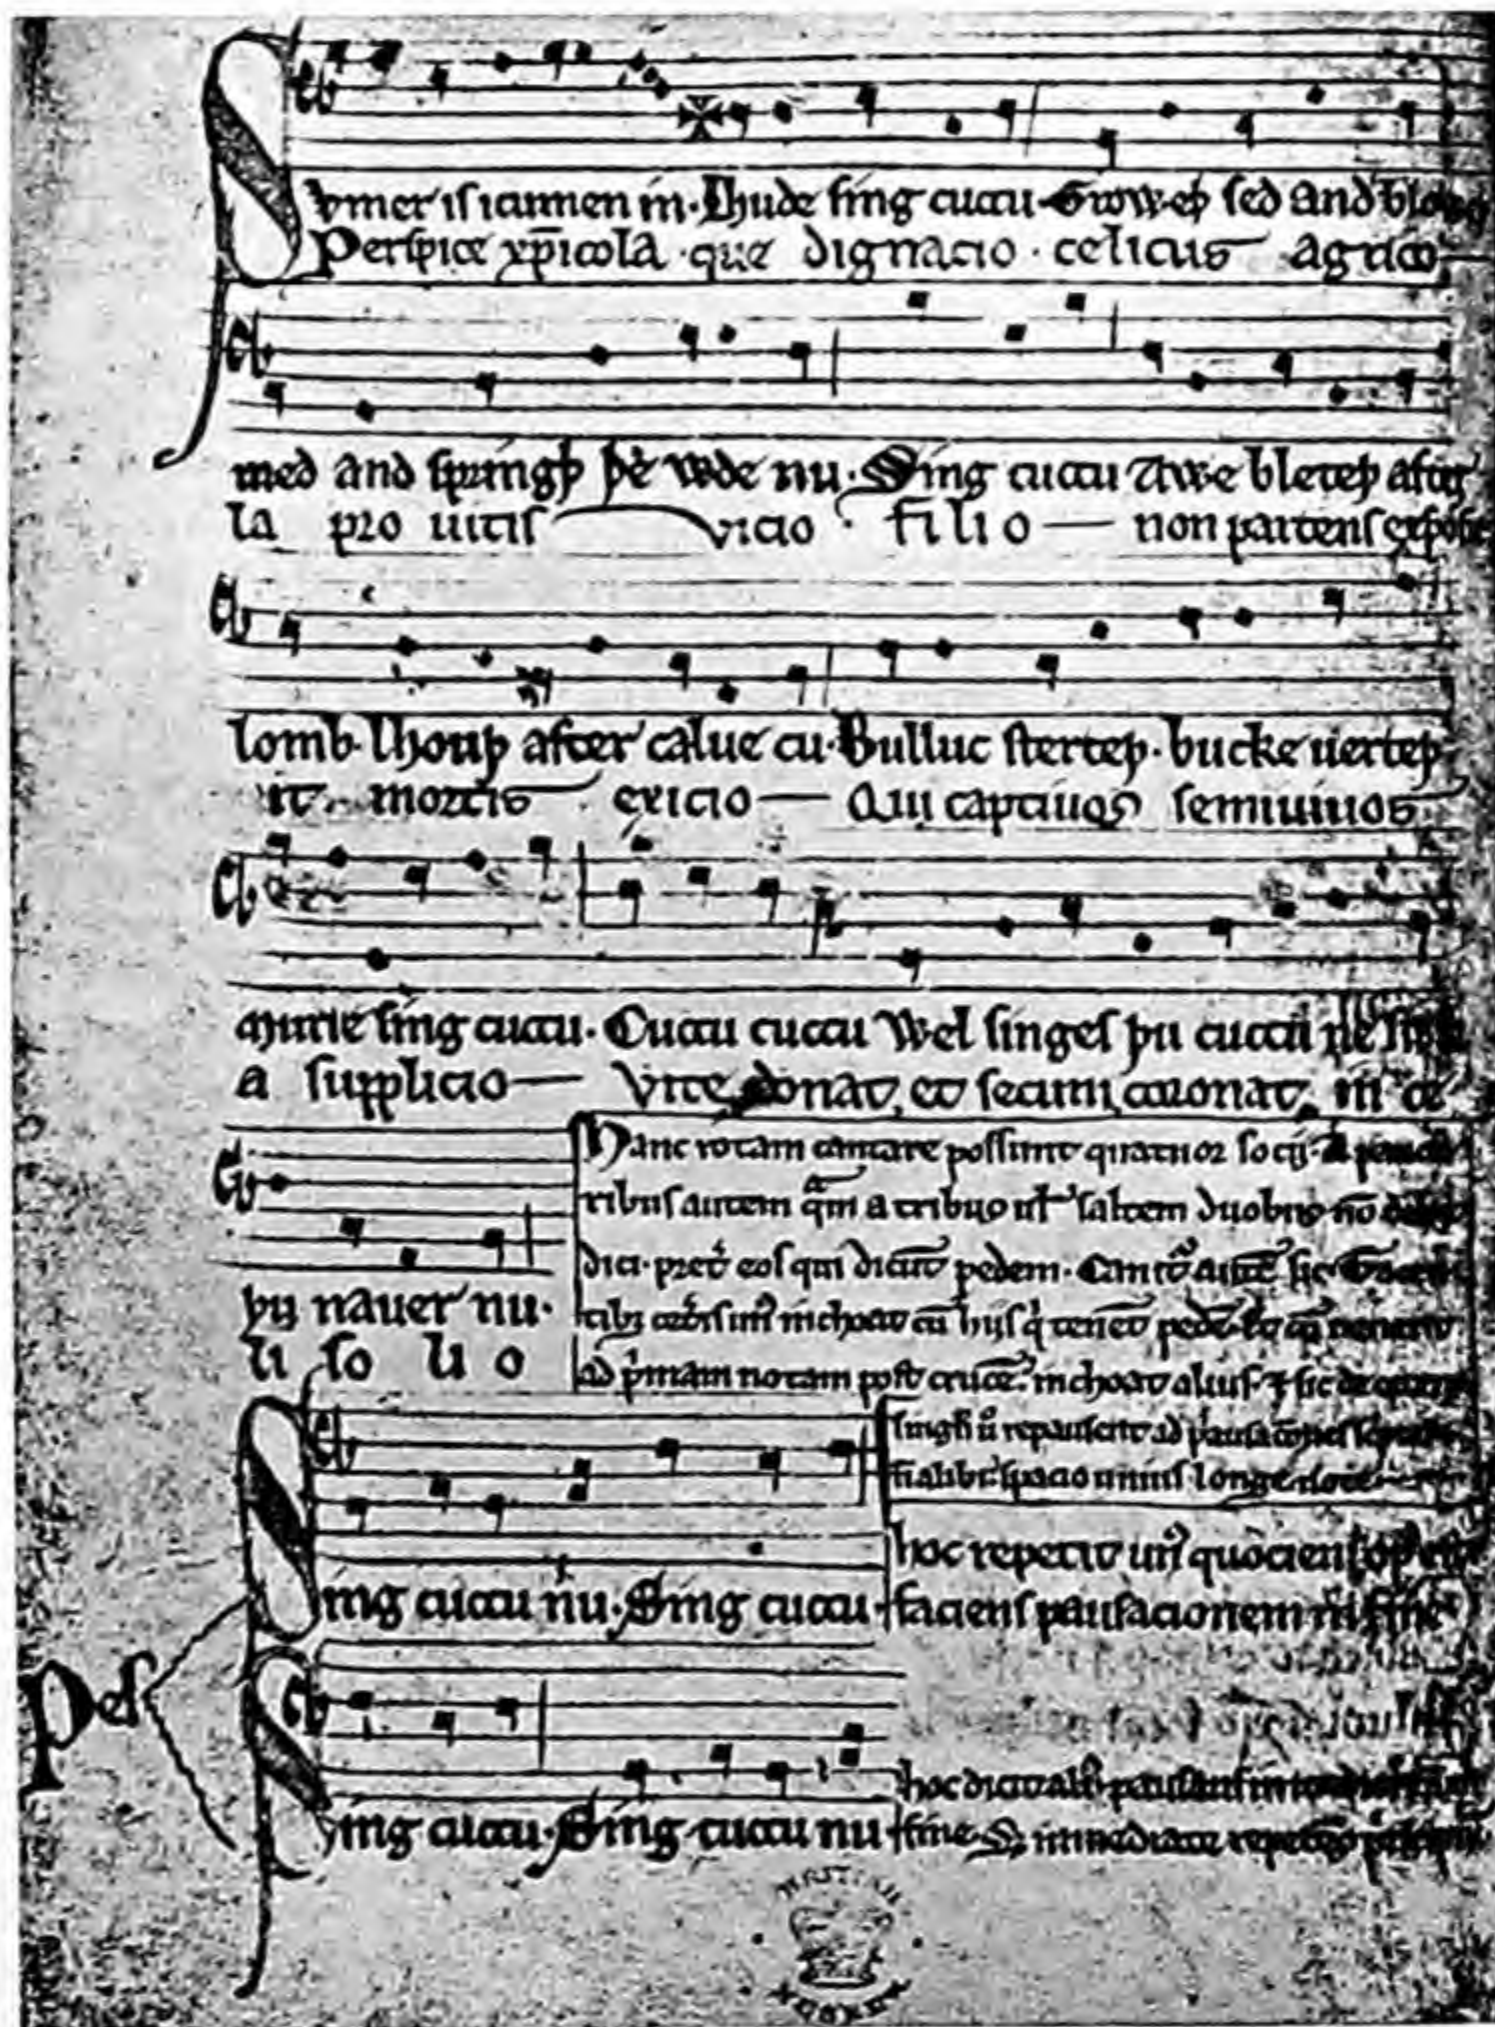 Svmer is icumen in· Lhude sing cuccu· Groweþ sed and bloweþ
Perspice xp̄icola· que dignacio· celicus agrico
med and springþ þe wde nu· Sing cuccu Awe bleteþ after
la pro uitis vicio· filio non parcens exposu
lomb· lhouþ after calue cu· Bulluc sterteþ· bucke uerteþ
it mortis exicio Qui captiuos semiuiuos
murie sing cuccu· Cuccu cuccu Wel singes þu cuccu ne swik
a supplicio Vite donat, et secum coronat, in ce
þu nauer nu·
li so li o
Hanc rotam cantare possunt quatuor socij· A pauciori
ribus autem quam a tribus ul' saltem duobus nō debet
dici· pret' eos qui dicunt pedem· Canit' autē sic· Tacen
tibȝ ceteris un' inchoat cū hijs qi tenēt pedē· Et cū uenerit
ad p'mam notam post crucē· inchoat alius· ⁊ sic de ceteris
singli ū repausent ad pausacōnes
⁊ n alibi· spacio unius longe note
Sing cuccu nu· Sing cuccu·
hoc repetit un' quociens op' est
faciens pausacionem in fine
Pes
Sing cuccu· Sing cuccu nu
hoc dicit ali' pausans in medio
fine· S; immediate repetens